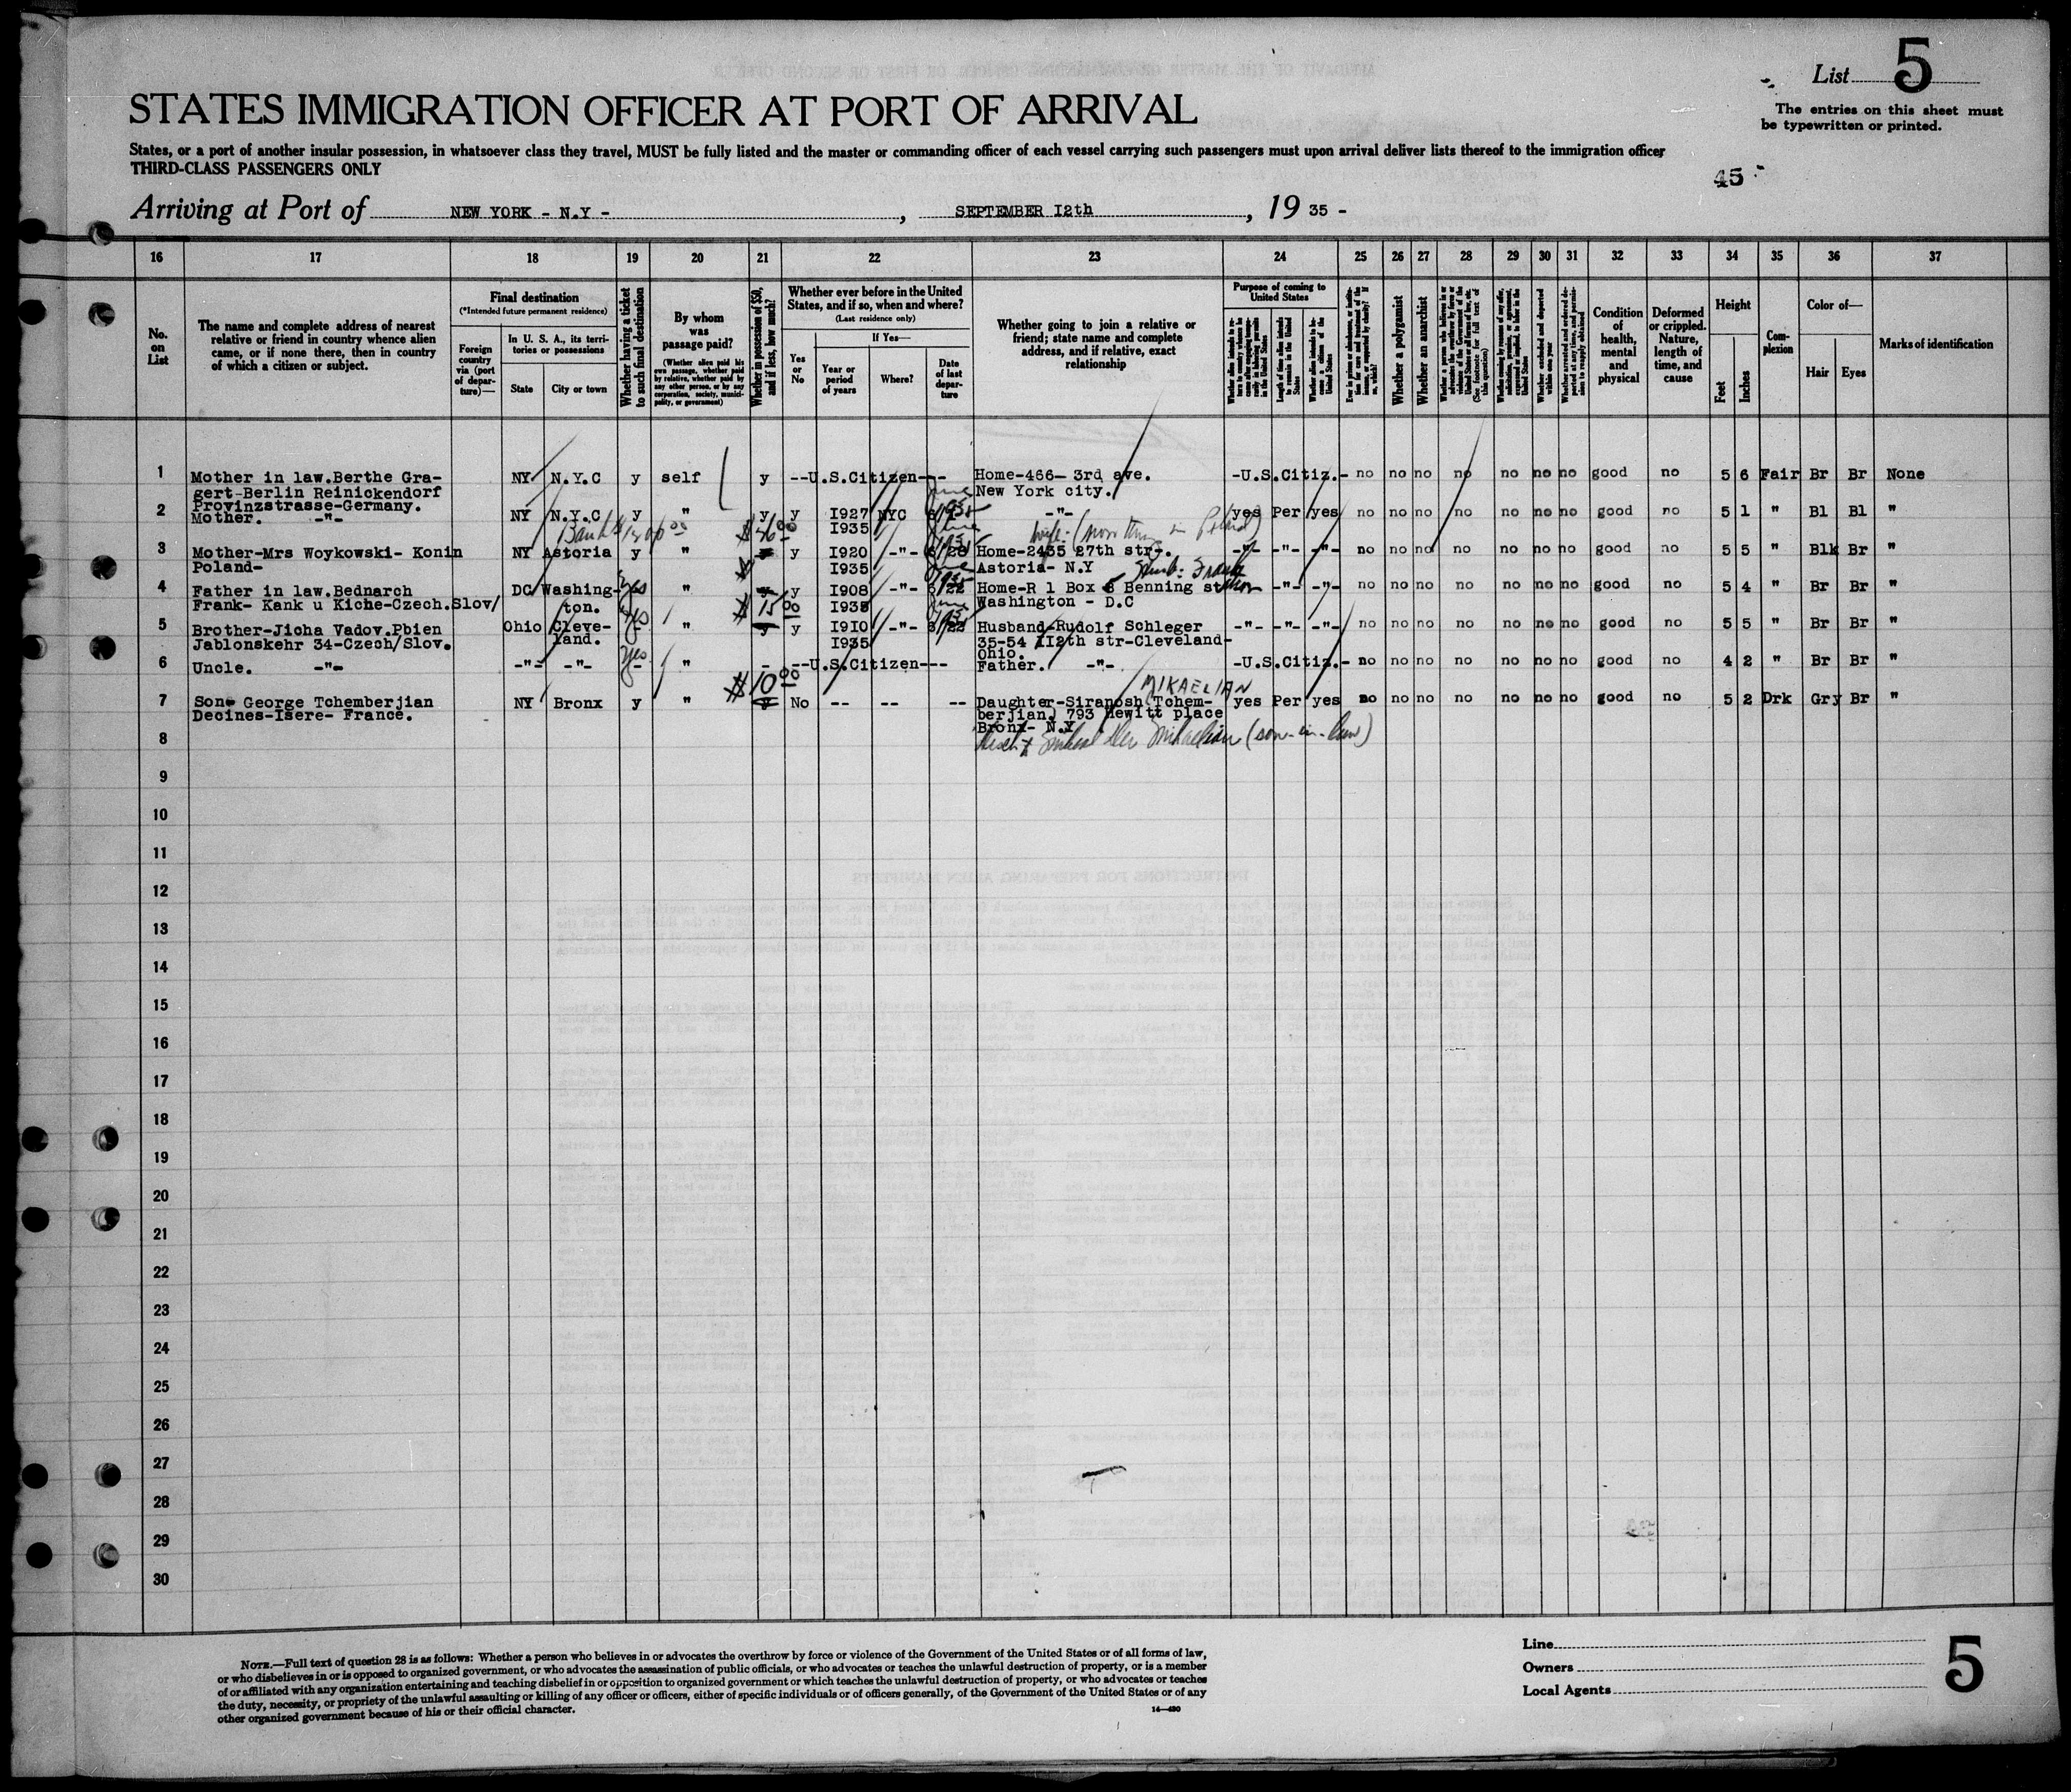 List 5
The entries on this sheet must
be typewritten or printed.
STATES IMMIGRATION OFFICER AT PORT OF ARRIVAL
States, or a port of another insular possession, in whatsoever class they travel, MUST be fully listed and the master or commanding officer of each vessel carrying such passengers must upon arrival deliver lists thereof to the immigration officer
THIRD-CLASS PASSENGERS ONLY
45
Arriving at Port of NEW YORK - N.Y - , SEPTEMBER I2th , 19 35 -
16 17 18 19 20 21 22 23 24 25 26 27 28 29 30 31 32 33 34 35 36 37
No. on List
The name and complete address of nearest
relative or friend in country whence alien
came, or if none there, then in country
of which a citizen or subject.
Final destination
(*Intended future permanent residence)
Foreign country via (port of departure)—
In U. S. A., its territories or possessions
State
City or town
Whether having a ticket to such final destination
By whom was passage paid?
(Whether alien paid his own passage, whether paid by relative, whether paid by any other person, or by any corporation, society, municipality, or government)
Whether in possession of $50, and if less, how much?
Whether ever before in the United
States, and if so, when and where?
(Last residence only)
Yes or No
If Yes—
Year or period of years
Where?
Date of last departure
Whether going to join a relative or
friend; state name and complete
address, and if relative, exact
relationship
Purpose of coming to United States
Whether a polygamist
Whether an anarchist
Condition of health, mental and physical
Deformed or crippled. Nature, length of time, and cause
Height
Feet
Inches
Complexion
Color of—
Hair
Eyes
Marks of identification
1 Mother in law.Berthe Gra- NY N.Y.C y self y --U.S.Citizen--- Home-466- 3rd ave. -U.S.Citiz.- no no no no no no no good no 5 6 Fair Br Br None
gert-Berlin Reinickendorf New York city.
Provinzstrasse-Germany.
2 Mother. -"- NY N.Y.C y " y y I927 NYC -"- yes Per yes no no no no no no no good no 5 1 " Bl Bl "
I935
3 Mother-Mrs Woykowski- Konin NY Astoria y " $46 00 y I920 -"- Home-2435 27th str-. -"- -"- -"- no no no no no no no good no 5 5 " Blk Br "
Poland- I935 Astoria- N.Y
4 Father in law.Bednarch DC Washing- yes " y y I908 -"- Home-R 1 Box 8 Benning station -"- -"- no no no no no no no good no 5 4 " Br Br "
Frank- Kank u Kiche-Czech.Slov/ ton. I935 Washington - D.C
5 Brother-Jicha Vadov.Pbien Ohio Cleve- yes " $15 00 y I9I0 -"- Husband-Rudolf Schleger -"- -"- -"- no no no no no no no good no 5 5 " Br Br "
Jablonskehr 34-Czech/Slov. land. I935 35-54 II2th str-Cleveland-
Ohio.
6 Uncle. -"- -"- -"- yes " - --U.S.Citizen--- Father. -"- -U.S.Citiz.- no no no no no no no good no 4 2 " Br Br "
MIKAELIAN
7 Son- George Tchemberjian NY Bronx y " $10 00 No -- -- -- Daughter-Siranosh Tchem- yes Per yes no no no no no no no good no 5 2 Drk Gry Br "
Decines-Isere- France. berjian, 793 Hewitt place
Bronx- N.Y
8 (son-in-law)
9
10
11
12
13
14
15
16
17
18
19
20
21
22
23
24
25
26
27
28
29
30
NOTE.—Full text of question 28 is as follows: Whether a person who believes in or advocates the overthrow by force or violence of the Government of the United States or of all forms of law,
or who disbelieves in or is opposed to organized government, or who advocates the assassination of public officials, or who advocates or teaches the unlawful destruction of property, or is a member
of or affiliated with any organization entertaining and teaching disbelief in or opposition to organized government or which teaches the unlawful destruction of property, or who advocates or teaches
the duty, necessity, or propriety of the unlawful assaulting or killing of any officer or officers, either of specific individuals or of officers generally, of the Government of the United States or of any
other organized government because of his or their official character.
14—430
Line
Owners
Local Agents
5